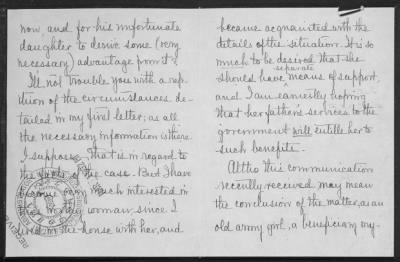 now, and for his unfortunate
daughter to derive some (very
necessary) advantage from it?
I'll not trouble you with a rep-
itition of the circumstances de-
tailed in my first letter; as all
the necessary information is there
I suppose, that is in regard to
the facts of the case. But I have
become very much interested in
the woman since I
lived in the house with her, and
became acquainted with the
details of the situation. It is so
much to be desired that she
should have separate means of support,
and I am earnestly hoping
that her father's services to the
government will entitle her to
such benefits.
Altho this communication
recently received may mean
the conclusion of the matter, as an
old army girl, a beneficiary my-